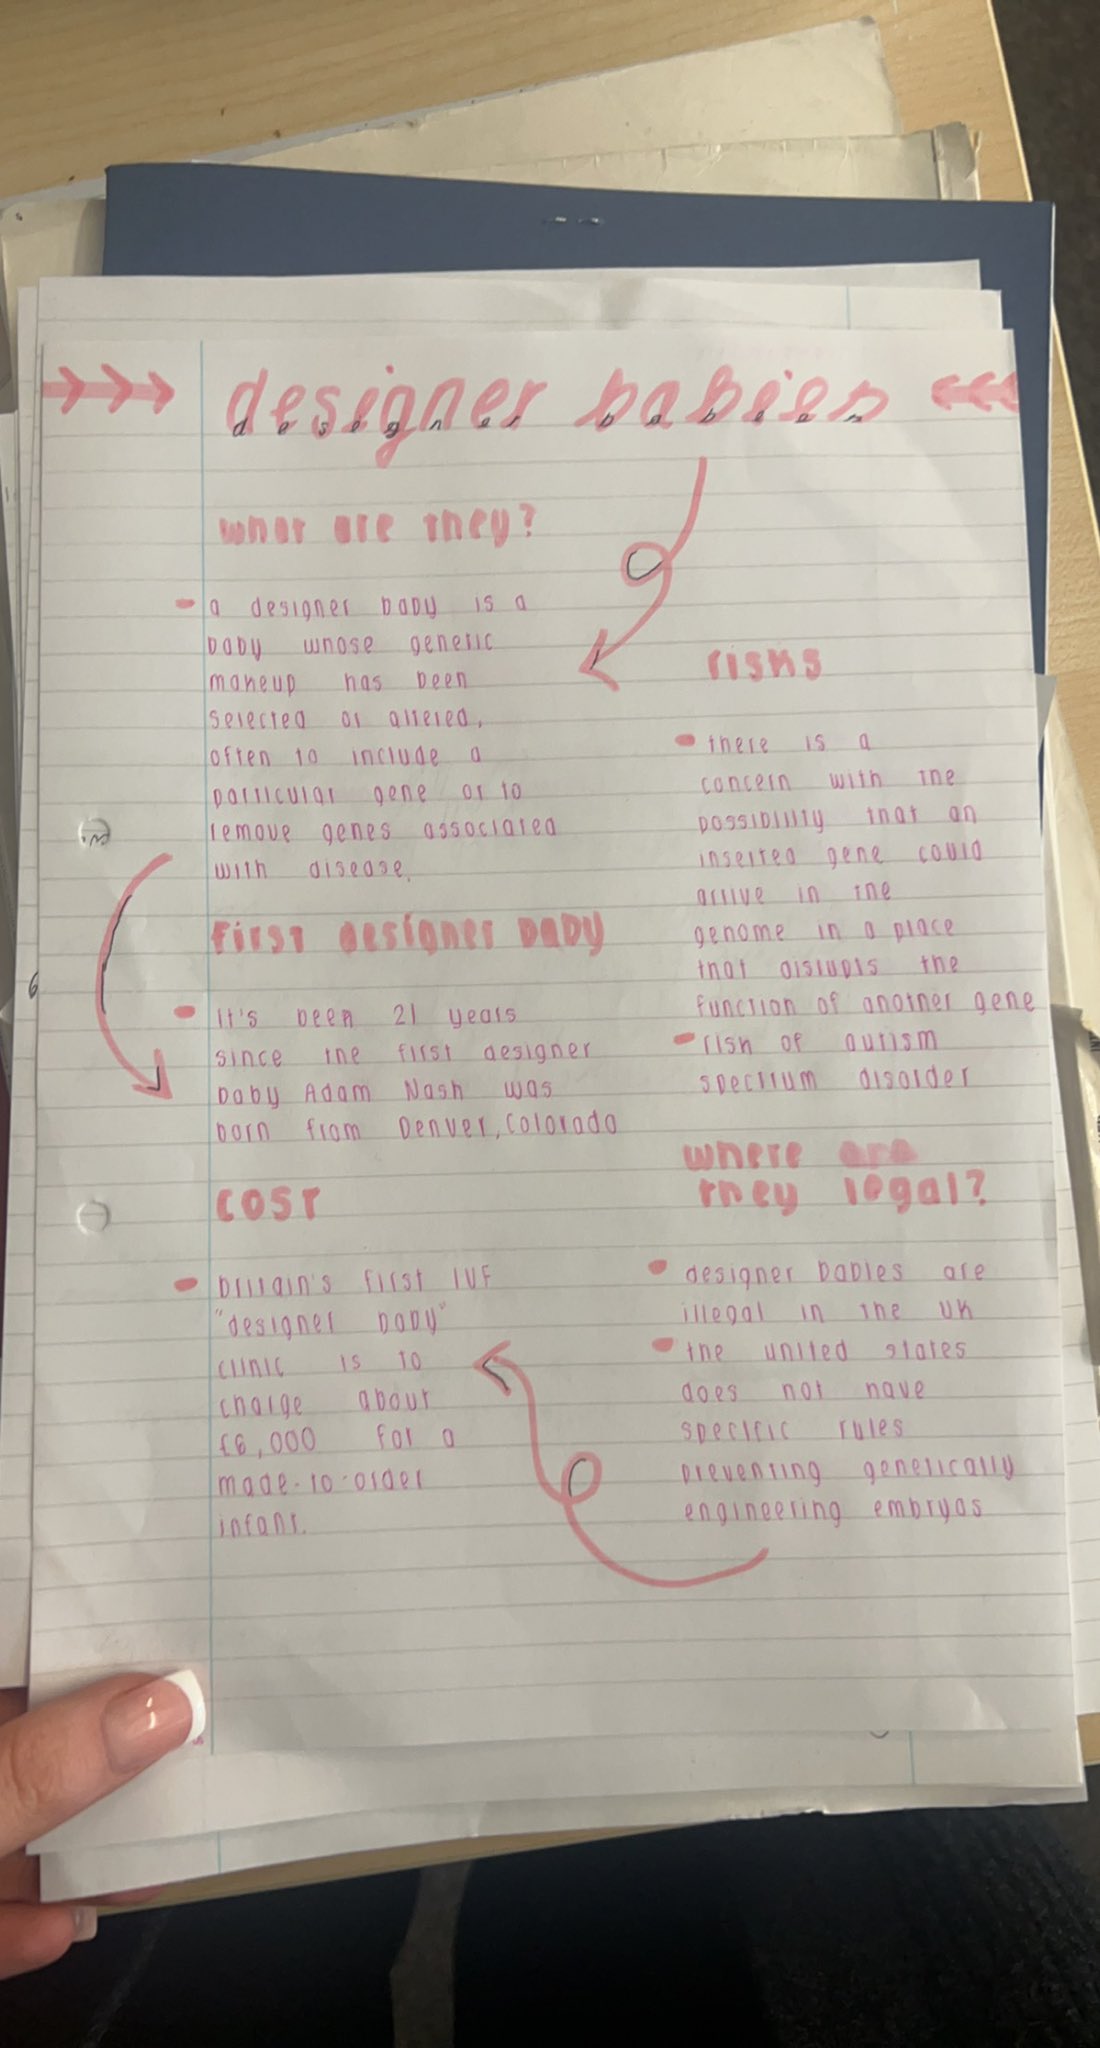 designer babies
what are they?
a designer baby is a
baby whose genetic
makeup has been
selected or altered,
often to include a
particular gene or to
remove genes associated
with disease.
first designer baby
it's been 21 years
since the first designer
baby Adam Nash was
born from Denver, Colorado
cost
britain's first IVF
"designer baby"
clinic is to
charge about
£6,000 for a
made-to-order
infant.
risks
there is a
concern with the
possibility that an
inserted gene could
arrive in the
genome in a place
that disrupts the
function of another gene
risk of autism
spectrum disorder
where are
they legal?
designer babies are
illegal in the UK
the united states
does not have
specific rules
preventing genetically
engineering embryos